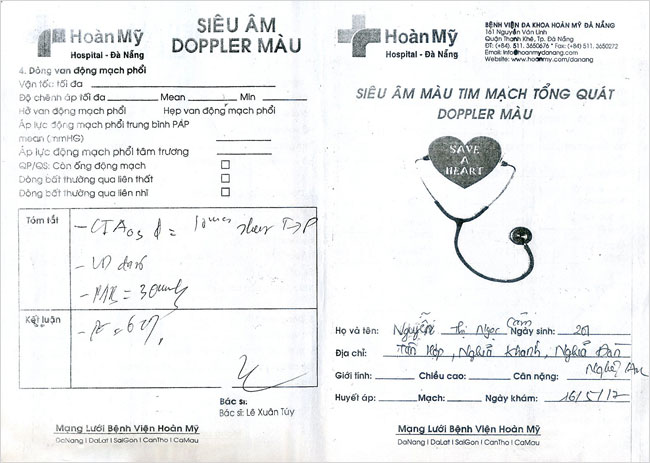 HoànMỹ
Hospital - Đà Nẵng
SIÊU ÂM
DOPPLER MÀU
4. Dòng van động mạch phổi
Vận tốc tối đa
Độ chênh áp tối đa Mean Min
Hở van động mạch phổi Hẹp van động mạch phổi
Áp lực động mạch phổi trung bình PAP
mean (mmHG)
Áp lực động mạch phổi tâm trương
QP/QS: Còn ống động mạch
Dòng bất thường qua liên thất
Dòng bất thường qua liên nhĩ
Tóm tắt
- CIA OS φ = 10mm shunt T→P
- VD
- PAPs = 30mmHg
Kết luận
- = 62%
Bác sĩ:
Bác sĩ: Lê Xuân Túy
Mạng Lưới Bệnh Viện Hoàn Mỹ
DaNang I DaLat I SaiGon I CanTho I CaMau
HoànMỹ
Hospital - Đà Nẵng
BỆNH VIỆN ĐA KHOA HOÀN MỸ ĐÀ NẴNG
161 Nguyễn Văn Linh
Quận Thanh Khê, Tp. Đà Nẵng
ĐT: (+84). 511. 3650676 * Fax: (+84) 511. 3650272
Email: info@hoanmydanang.com
Website: www.hoanmy.com/danang
SIÊU ÂM MÀU TIM MẠCH TỔNG QUÁT
DOPPLER MÀU
SAVE
A
HEART
Họ và tên: Nguyễn Thị Ngọc Cẩm Ngày sinh: 201
Địa chỉ: Tân Hợp, Nghĩa Khánh, Nghĩa Đàn
Nghệ An
Giới tính: Chiều cao: Cân nặng:
Huyết áp: Mạch: Ngày khám: 16/5/12
Mạng Lưới Bệnh Viện Hoàn Mỹ
DaNang I DaLat I SaiGon I CanTho I CaMau